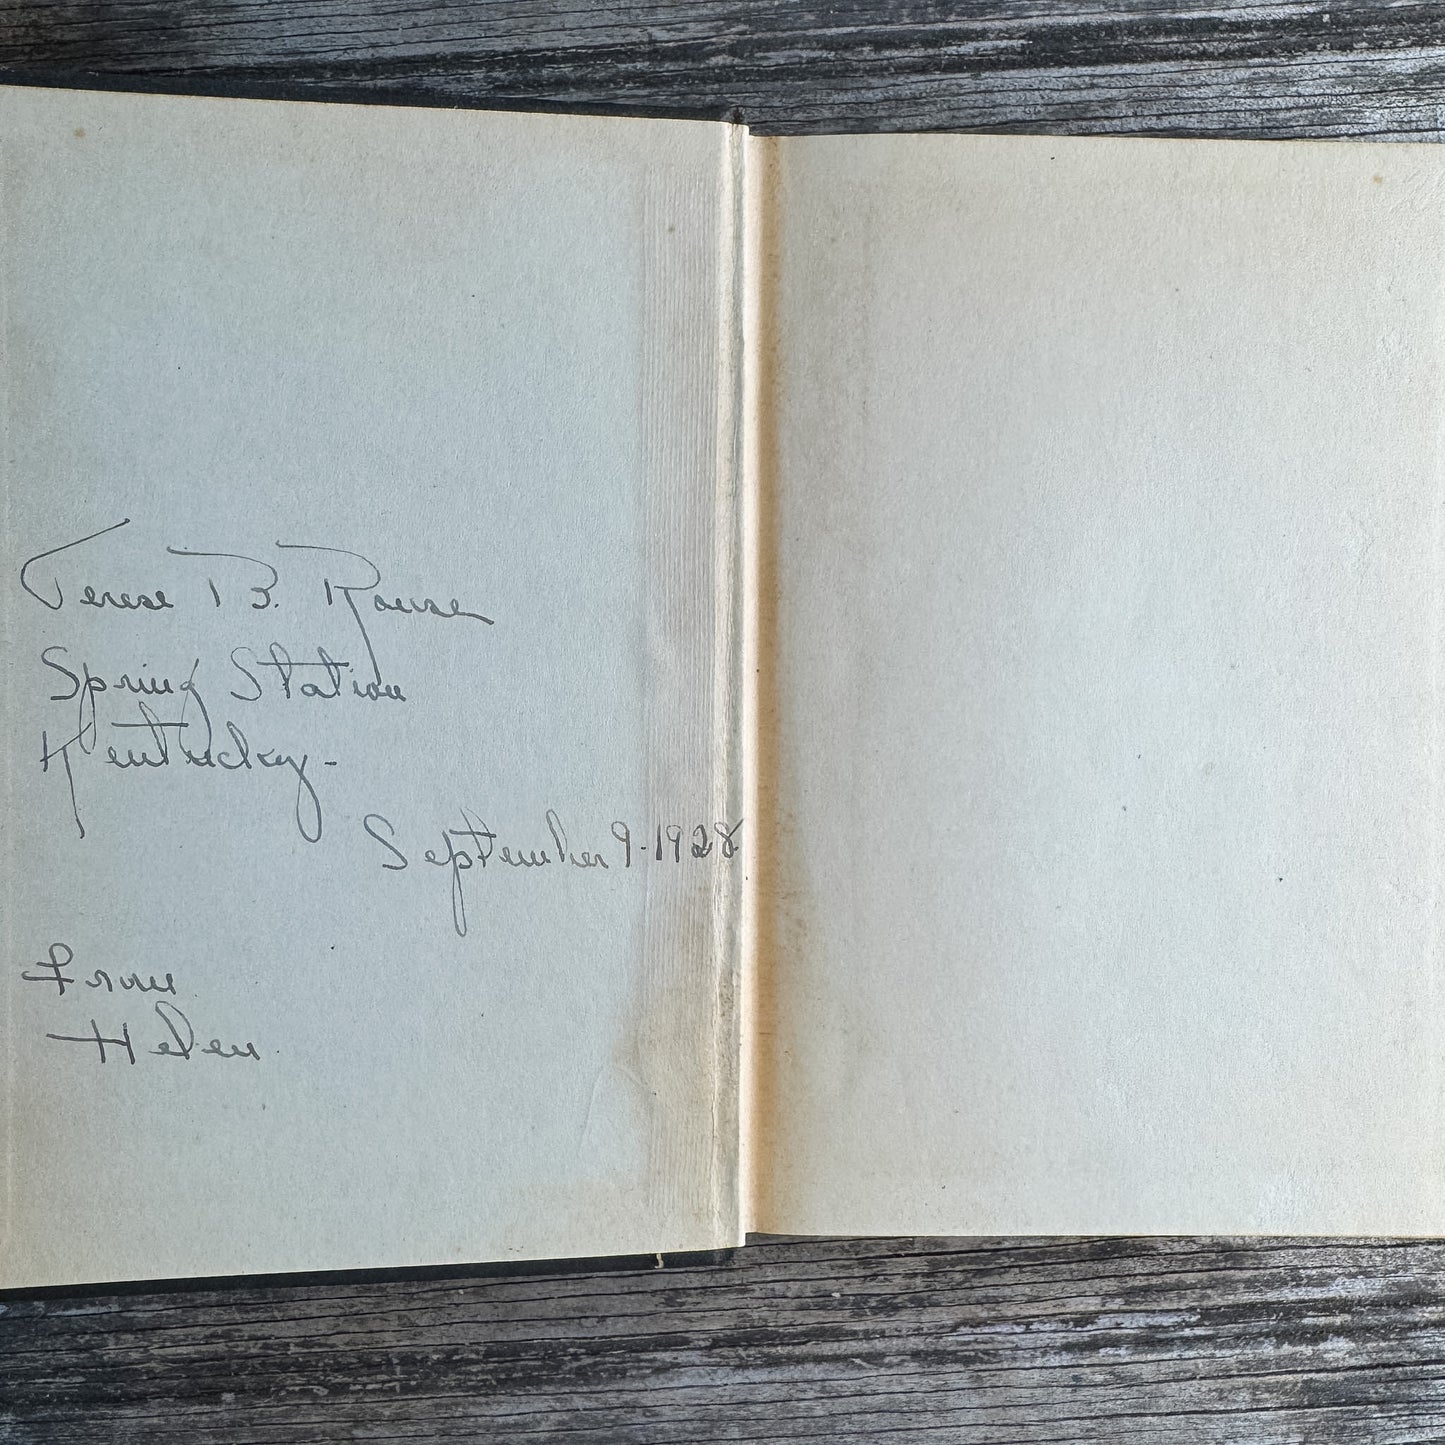 Terese B. Rouse
Spring Station
Kentucky-
September 9-1928
From
Helen